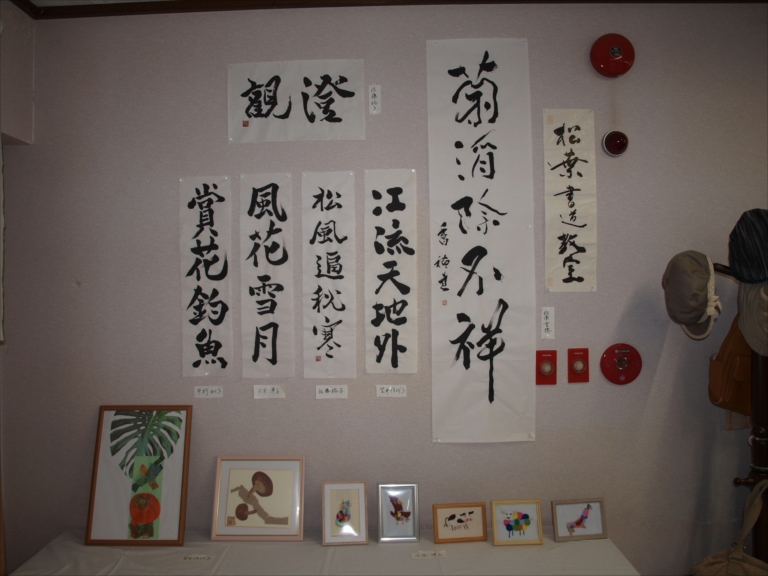 松葉書道教室
菊消除不祥
澄観
江流天地外
松風遍秋寒
風花雪月
賞花釣魚